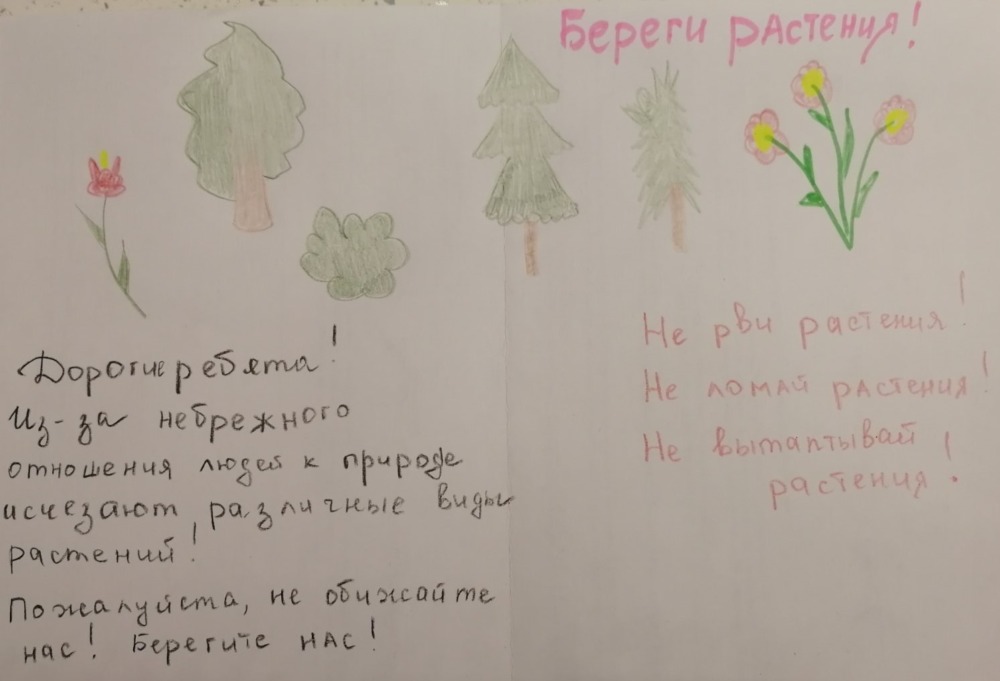 Береги растения!
Дорогие ребята!
Из-за небрежного
отношения людей к природе
исчезают различные виды
растений!
Пожалуйста, не обижайте
нас! Берегите нас!
Не рви растения!
Не ломай растения!
Не вытаптывай
растения!